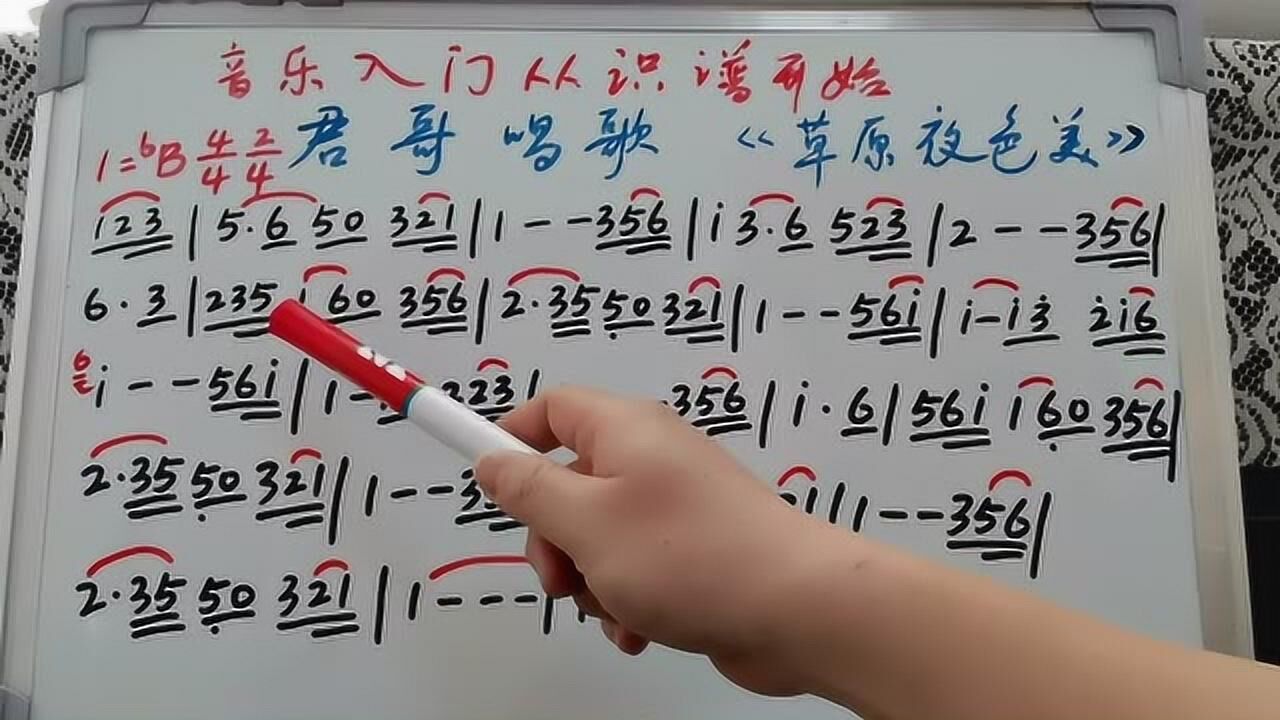 音乐入门从识谱开始
1=ᵇB 4/4 2/4 君哥唱歌 《草原夜色美》
123 | 5·6 50 321 | 1 - - 356 | i 3·6 523 | 2 - - 356 |
6·3 | 235 i60 356 | 2·35 50 321 | 1 - - 56i | i - i3 2i6
6 i - - 56i | 1 - 223 | 356 | i·6 | 56i i60 356 |
2·35 50 321 | 1 - - 3 1 | 1 - - 356 |
2·35 50 321 | 1 - - - |